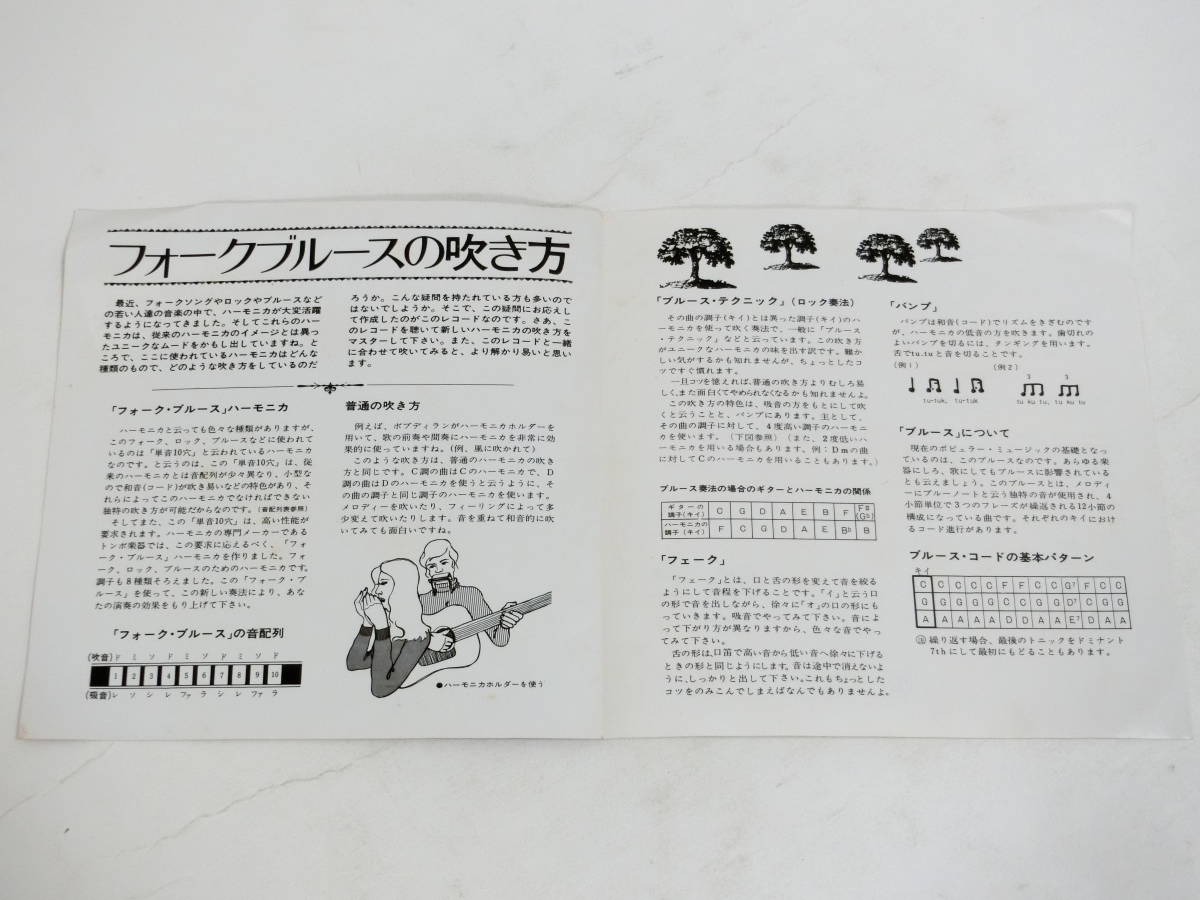 フォークブルースの吹き方
最近、フォークソングやロックやブルースなど
の若い人達の音楽の中で、ハーモニカが大変活躍
するようになってきました。そしてこれらのハー
モニカは、従来のハーモニカのイメージとは異っ
たユニークなムードをかもし出していますね。と
ころで、ここに使われているハーモニカはどんな
種類のもので、どのような吹き方をしているのだ
ろうか。こんな疑問を持たれている方も多いので
はないでしょうか。そこで、この疑問にお応えし
て作成したのがこのレコードなのです。さあ、こ
のレコードを聴いて新しいハーモニカの吹き方を
マスターして下さい。また、このレコードと一緒
に合わせて吹いてみると、より解かり易いと思い
ます。
「フォーク・ブルース」ハーモニカ
ハーモニカと云っても色々な種類がありますが、
このフォーク、ロック、ブルースなどに使われて
いるのは「単音10穴」と云われているハーモニカ
なのです。と云うのは、この「単音10穴」は、従
来のハーモニカとは音配列が少々異なり、小型な
ので和音(コード)が吹き易いなどの特色があり、そ
れらによってこのハーモニカでなければできない
独特の吹き方が可能だからなのです。(音配列表参照)
そしてまた、この「単音10穴」は、高い性能が
要求されます。ハーモニカの専門メーカーである
トンボ楽器では、この要求に応えるべく、「フォ
ーク・ブルース」ハーモニカを作りました。フォ
ーク、ロック、ブルースのためのハーモニカです。
調子も8種類そろえました。この「フォーク・ブ
ルース」を使って、この新しい奏法により、あな
たの演奏の効果をもり上げて下さい。
「フォーク・ブルース」の音配列
(吹音) ド ミ ソ ド ミ ソ ド ミ ソ ド
1 2 3 4 5 6 7 8 9 10
(吸音) レ ソ シ レ ファ ラ シ レ ファ ラ
普通の吹き方
例えば、ボブディランがハーモニカホルダーを
用いて、歌の前奏や間奏にハーモニカを非常に効
果的に使っていますね。(例、風に吹かれて)
このような吹き方は、普通のハーモニカの吹き
方と同じです。C調の曲はCのハーモニカで、D
調の曲はDのハーモニカを使うと云うように、そ
の曲の調子と同じ調子のハーモニカを使います。
メロディーを吹いたり、フィーリングによって多
少変えて吹いたりします。音を重ねて和音的に吹
いてみても面白いですね。
●ハーモニカホルダーを使う
「ブルース・テクニック」(ロック奏法)
その曲の調子(キイ)とは異った調子(キイ)のハ
ーモニカを使って吹く奏法で、一般に「ブルース
・テクニック」などと云っています。この吹き方
がユニークなハーモニカの味を出す訳です。難か
しい気がするかも知れませんが、ちょっとしたコ
ツですぐ慣れます。
一旦コツを憶えれば、普通の吹き方よりむしろ易
しく、また面白くてやめられなくなるかも知れませんよ。
この吹き方の特色は、吸音の方をもとにして吹
くと云うことと、バンプにあります。主として、
その曲の調子に対して、4度高い調子のハーモニ
カを使います。(下図参照)(また、2度低いハ
ーモニカを用いる場合もあります。例:Dmの曲
に対してCのハーモニカを用いることもあります。)
ブルース奏法の場合のギターとハーモニカの関係
ギターの調子(キイ) C G D A E B F F#(G♭)
ハーモニカの調子(キイ) F C G D A E B♭ B
「フェーク」
「フェーク」とは、口と舌の形を変えて音を絞る
ようにして音程を下げることです。「イ」と云う口
の形で音を出しながら、徐々に「オ」の口の形にも
っていきます。吸音でやってみて下さい。音によ
って下がり方が異なりますから、色々な音でやっ
てみて下さい。
舌の形は、口笛で高い音から低い音へ徐々に下げる
ときの形と同じようにします。音は途中で消えないよ
うに、しっかりと出して下さい。これもちょっとした
コツをのみこんでしまえばなんでもありませんよ。
「バンプ」
バンプは和音(コード)でリズムをきざむのです
が、ハーモニカの低音の方を吹きます。歯切れの
よいバンプを切るには、タンギングを用います。
舌でtu.tuと音を切ることです。
(例1) (例2)
3 3
tu-tuk, tu-tuk tu ku tu, tu ku tu
「ブルース」について
現在のポピュラー・ミュージックの基礎となっ
ているのは、このブルースなのです。あらゆる楽
器にしろ、歌にしてもブルースに影響されている
とも云えましょう。このブルースとは、メロディ
ーにブルーノートと云う独特の音が使用され、4
小節単位で3つのフレーズが繰返される12小節の
構成になっている曲です。それぞれのキイにおけ
るコード進行があります。
ブルース・コードの基本パターン
キイ
C C C C C F F C C G7 F C C
G G G G G C C G G D7 C G G
A A A A A D D A A E7 D A A
㊟ 繰り返す場合、最後のトニックをドミナント
7thにして最初にもどることもあります。